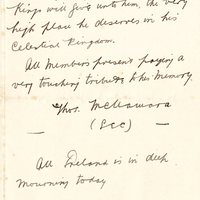 Kings will give unto him, the very
high place he deserves in his
Celestial Kingdom.
All Members present paying a
very touching tribute to his Memory.
Thos. McNamara
(Sec)
All Ireland is in deep
mourning today